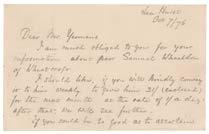 Lea Hurst
Oct 7/76
Dear Mr. Yeomans
I am much obliged to you for your
information about poor Samuel Wheeldon
of Wheatcroft.
I should like, if you will kindly convey
it to him weekly to give him 2/ (each week)
for the next month at the rate of a day.
after that, we shall see further.
if you could be so good as to ascertain